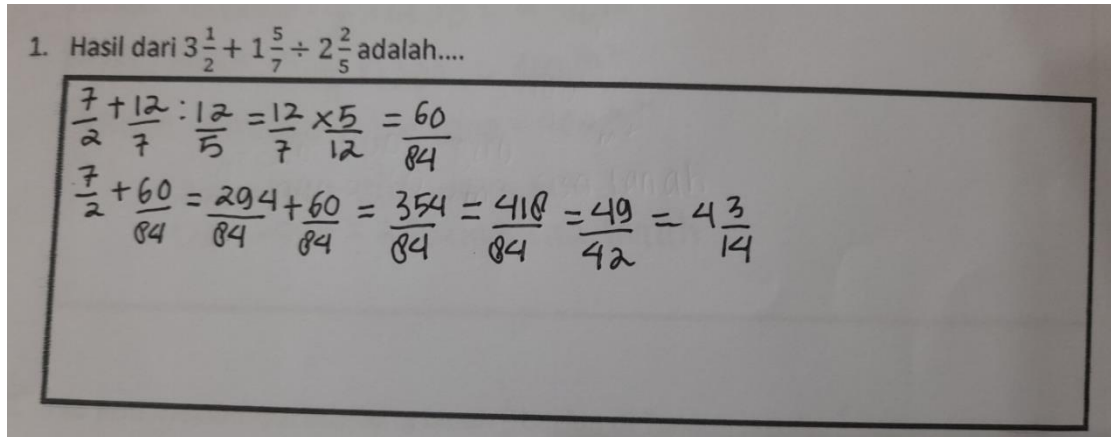 1. Hasil dari 3 1/2 + 1 5/7 ÷ 2 2/5 adalah....
7/2 + 12/7 : 12/5 = 12/7 × 5/12 = 60/84
7/2 + 60/84 = 294/84 + 60/84 = 354/84 = 418/84 = 49/42 = 4 3/14